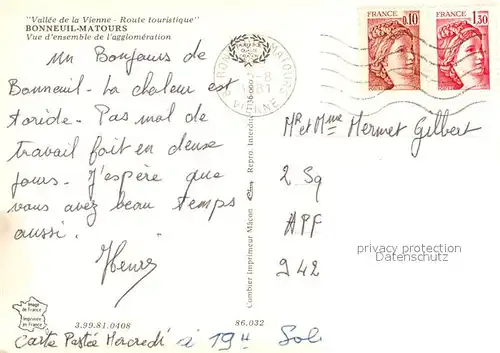 "Vallée de la Vienne - Route touristique"
BONNEUIL-MATOURS
Vue d'ensemble de l'agglomération
Un Bonjours de
Bonneuil. La chaleur est
toride. Pas mal de
travail fait en deux
jours. J'espère que
vous avez beau temps
aussi.
FRANCE 0,10
FRANCE 1,30
MATOURS
VIENNE
Mr et Mme Mermet Gilbert
2 Sq
APF
942
privacy protection
Datenschutz
Combier Imprimeur Mâcon Cim Repro. Interdite
Image de France
Imprimée en France
3.99.81.0408
86.032
Carte Postée Mercredi à 19H